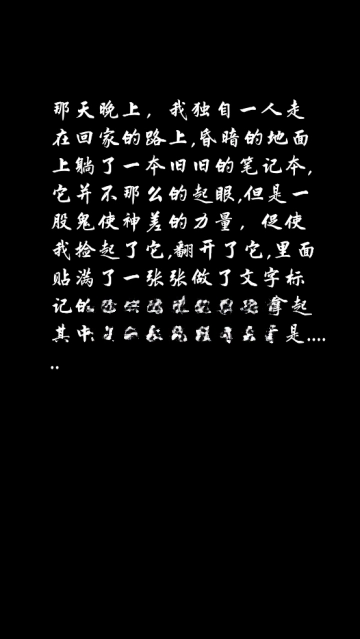 那天晚上，我独自一人走
在回家的路上,昏暗的地面
上躺了一本旧旧的笔记本,
它并不那么的起眼,但是一
股鬼使神差的力量，促使
我捡起了它,翻开了它,里面
贴满了一张张做了文字标
记的 拿起
其中 是....
..